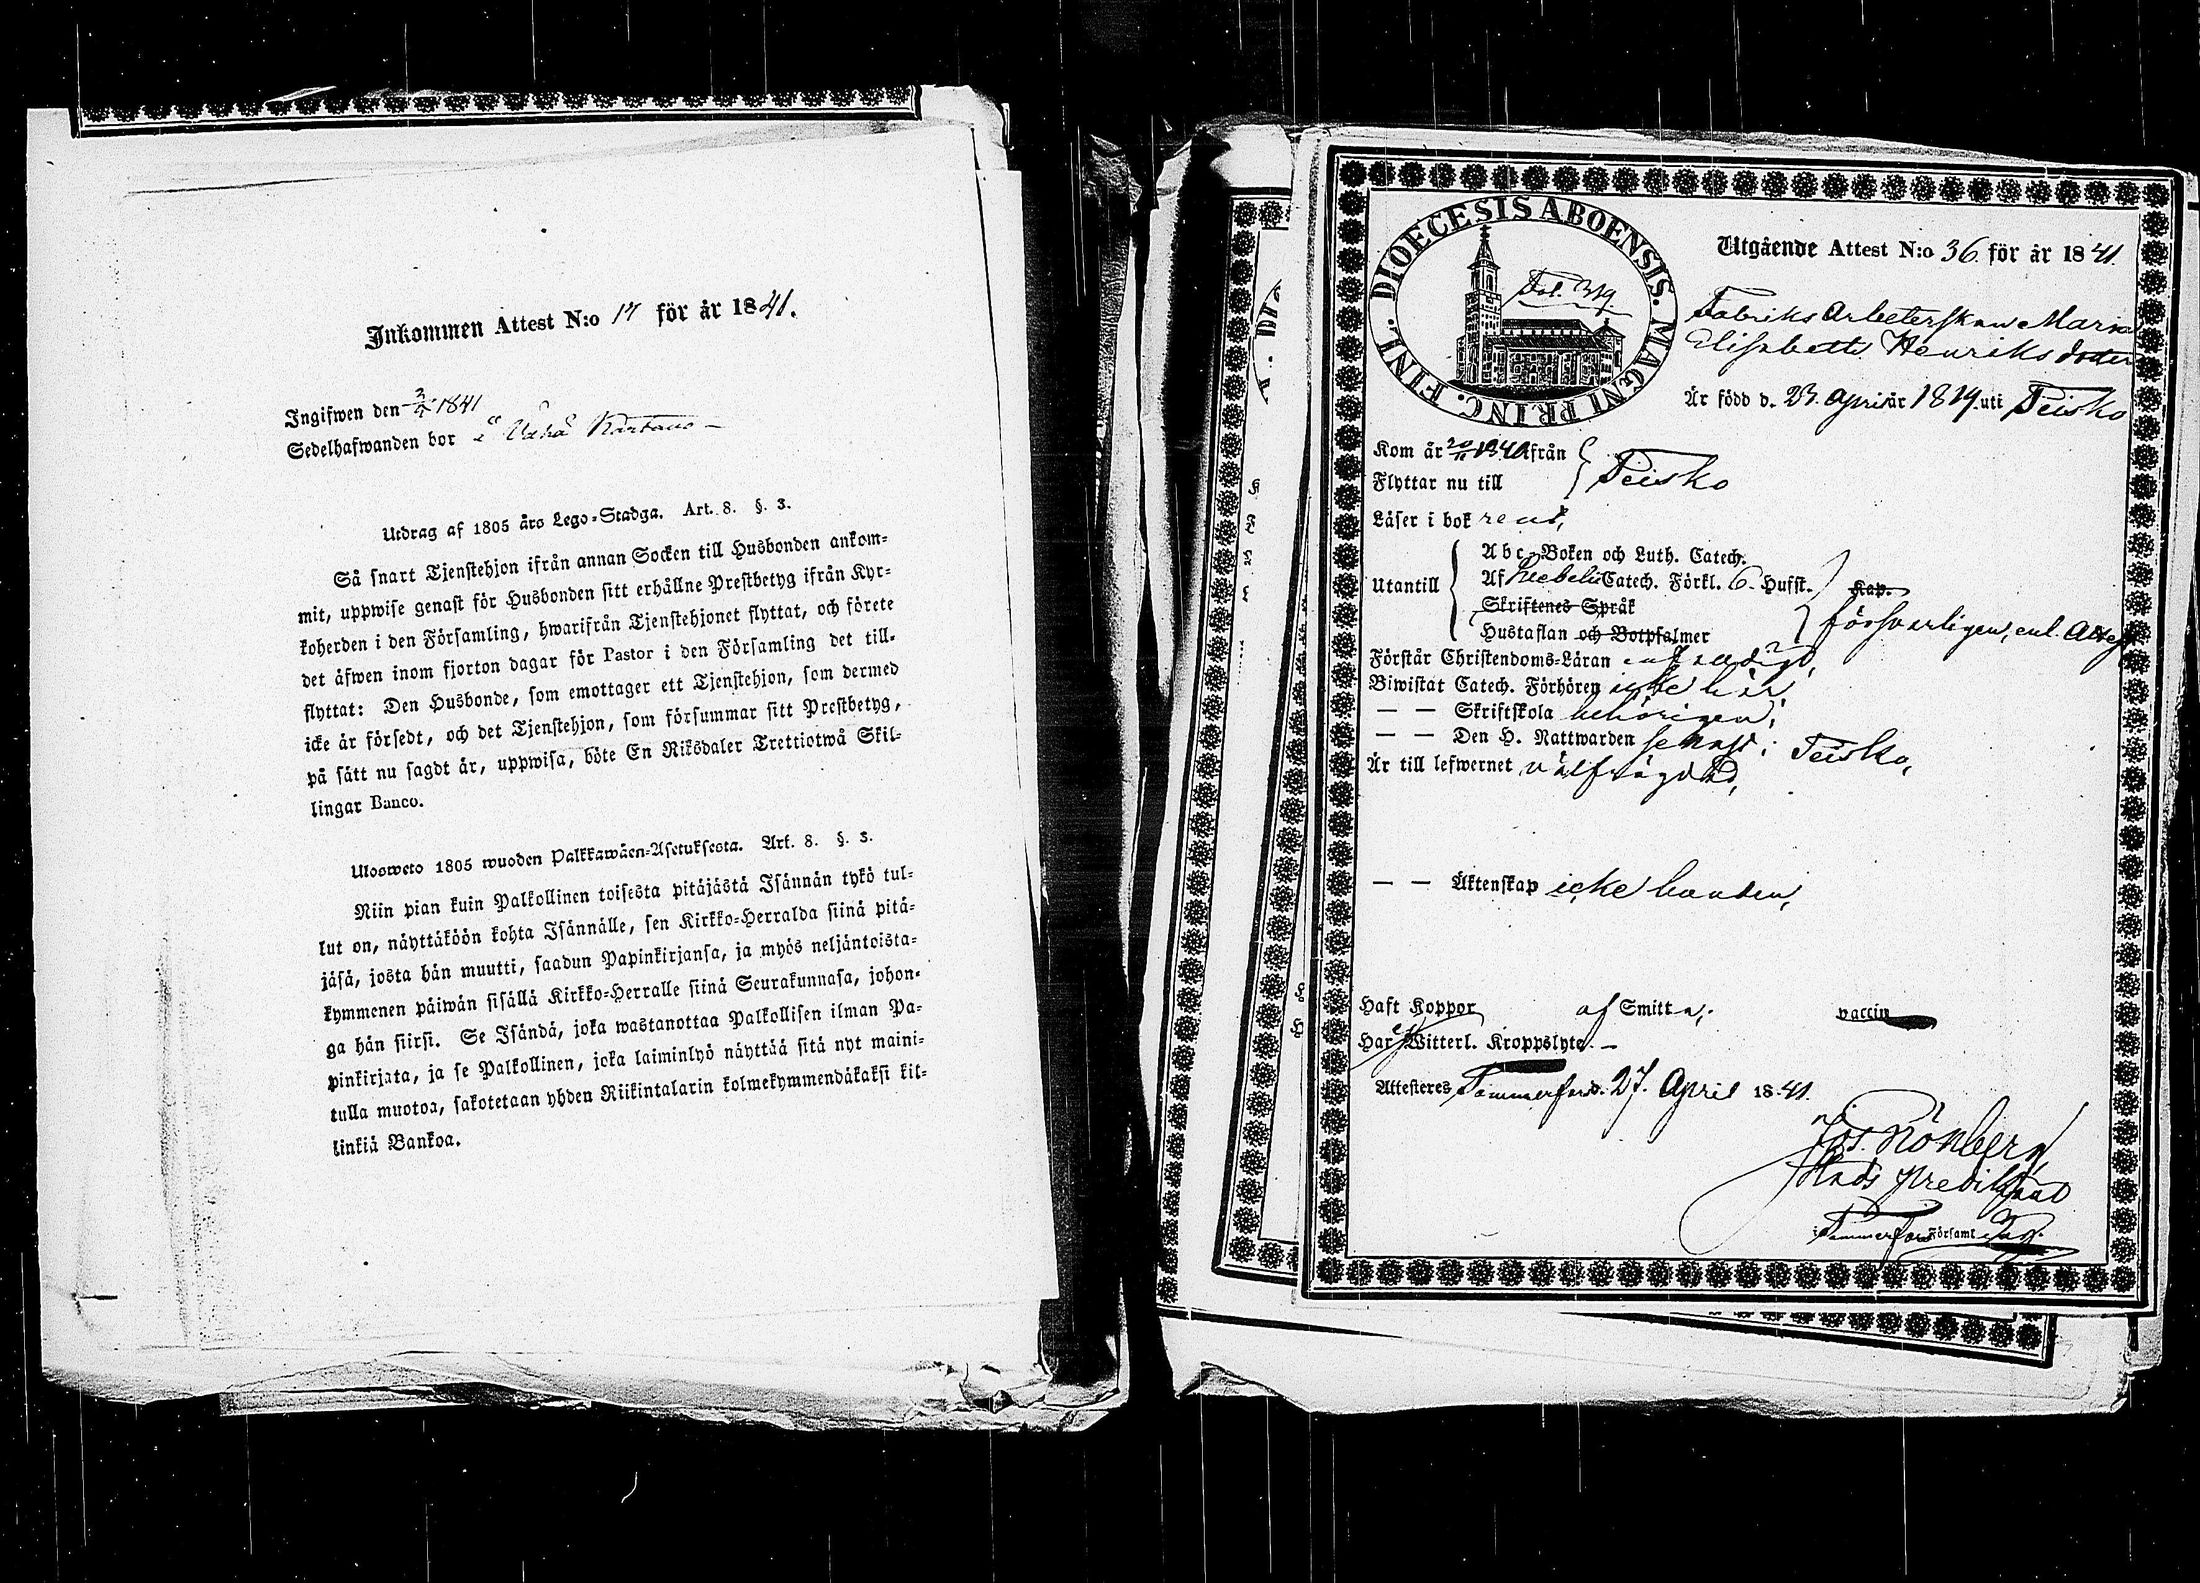 Inkommen Attest N:o 17 för år 1841.
Ingifwen den 2/5 1841
Sedelhafwanden bor i Vähä Kartano
Utdrag af 1805 års Lego-Stadga. Art. 8. §. 3.
Så snart Tjenstehjon ifrån annan Socken till Husbonden ankom-
mit, uppwise genast för Husbonden sitt erhållne Prestbetyg ifrån Kyr-
koherden i den Församling, hwarifrån Tjenstehjonet flyttat, och förete
det äfwen inom fjorton dagar för Pastor i den Församling det till-
flyttat: Den Husbonde, som emottager ett Tjenstehjon, som dermed
icke är försedt, och det Tjenstehjon, som försummar sitt Prestbetyg,
på sätt nu sagdt är, uppwisa, böte En Riksdaler Trettiotwå Skil-
lingar Banco.
Ulosweto 1805 wuoden Palkkawäen-Asetuksesta. Art. 8. §. 3.
Niin pian kuin Palkollinen toisesta pitäjästä Isännän tykö tul-
lut on, näyttäköön kohta Isännälle, sen Kirkko-Herralda siinä pitä-
jäsä, josta hän muutti, saadun Papinkirjansa, ja myös neljäntoista-
kymmenen päiwän sisällä Kirkko-Herralle siinä Seurakunnasa, johon-
ga hän siirsi. Se Isändä, joka wastanottaa Palkollisen ilman Pa-
pinkirjata, ja se Palkollinen, joka laiminlyö näyttää sitä nyt maini-
tulla muotoa, sakotetaan yhden Riikintalarin kolmekymmendäkaksi kil-
linkiä Bankoa.
DIOECESIS ABOENSIS. MAGNI PRINC. FINL.
Fol. 319
Utgående Attest N:o 36 för år 1841.
Fabriks Arbeterskan Maria
Elisabeth Henriksdotter
Är född d. 23. April år 1819. uti Teisko
Kom år 20/11 1840 ifrån
Flyttar nu till Teisko
Läser i bok rent,
Utantill
Abc-Boken och Luth. Catech.
Af Catech. Förkl. 6 Hufst. Kap.
Skriftenes Språk
Hustaflan och Botpsalmer försvarligen, enl. Attest
Förstår Christendoms-Läran enfaldigt,
Biwistat Catech. Förhören icke här,
— — Skriftskola behörigen,
— — Den H. Nattwarden senast i Teisko,
Är till lefwernet välfrägdad,
— — Äktenskap icke bunden,
Haft Koppor af Smitta, vaccin
Har Witterl. Kroppslyte. —
Attesteres Tammerfors d. 27. April 1841.
Jos. Rönberg
Stads Predikant
i Tammerfors Församling.